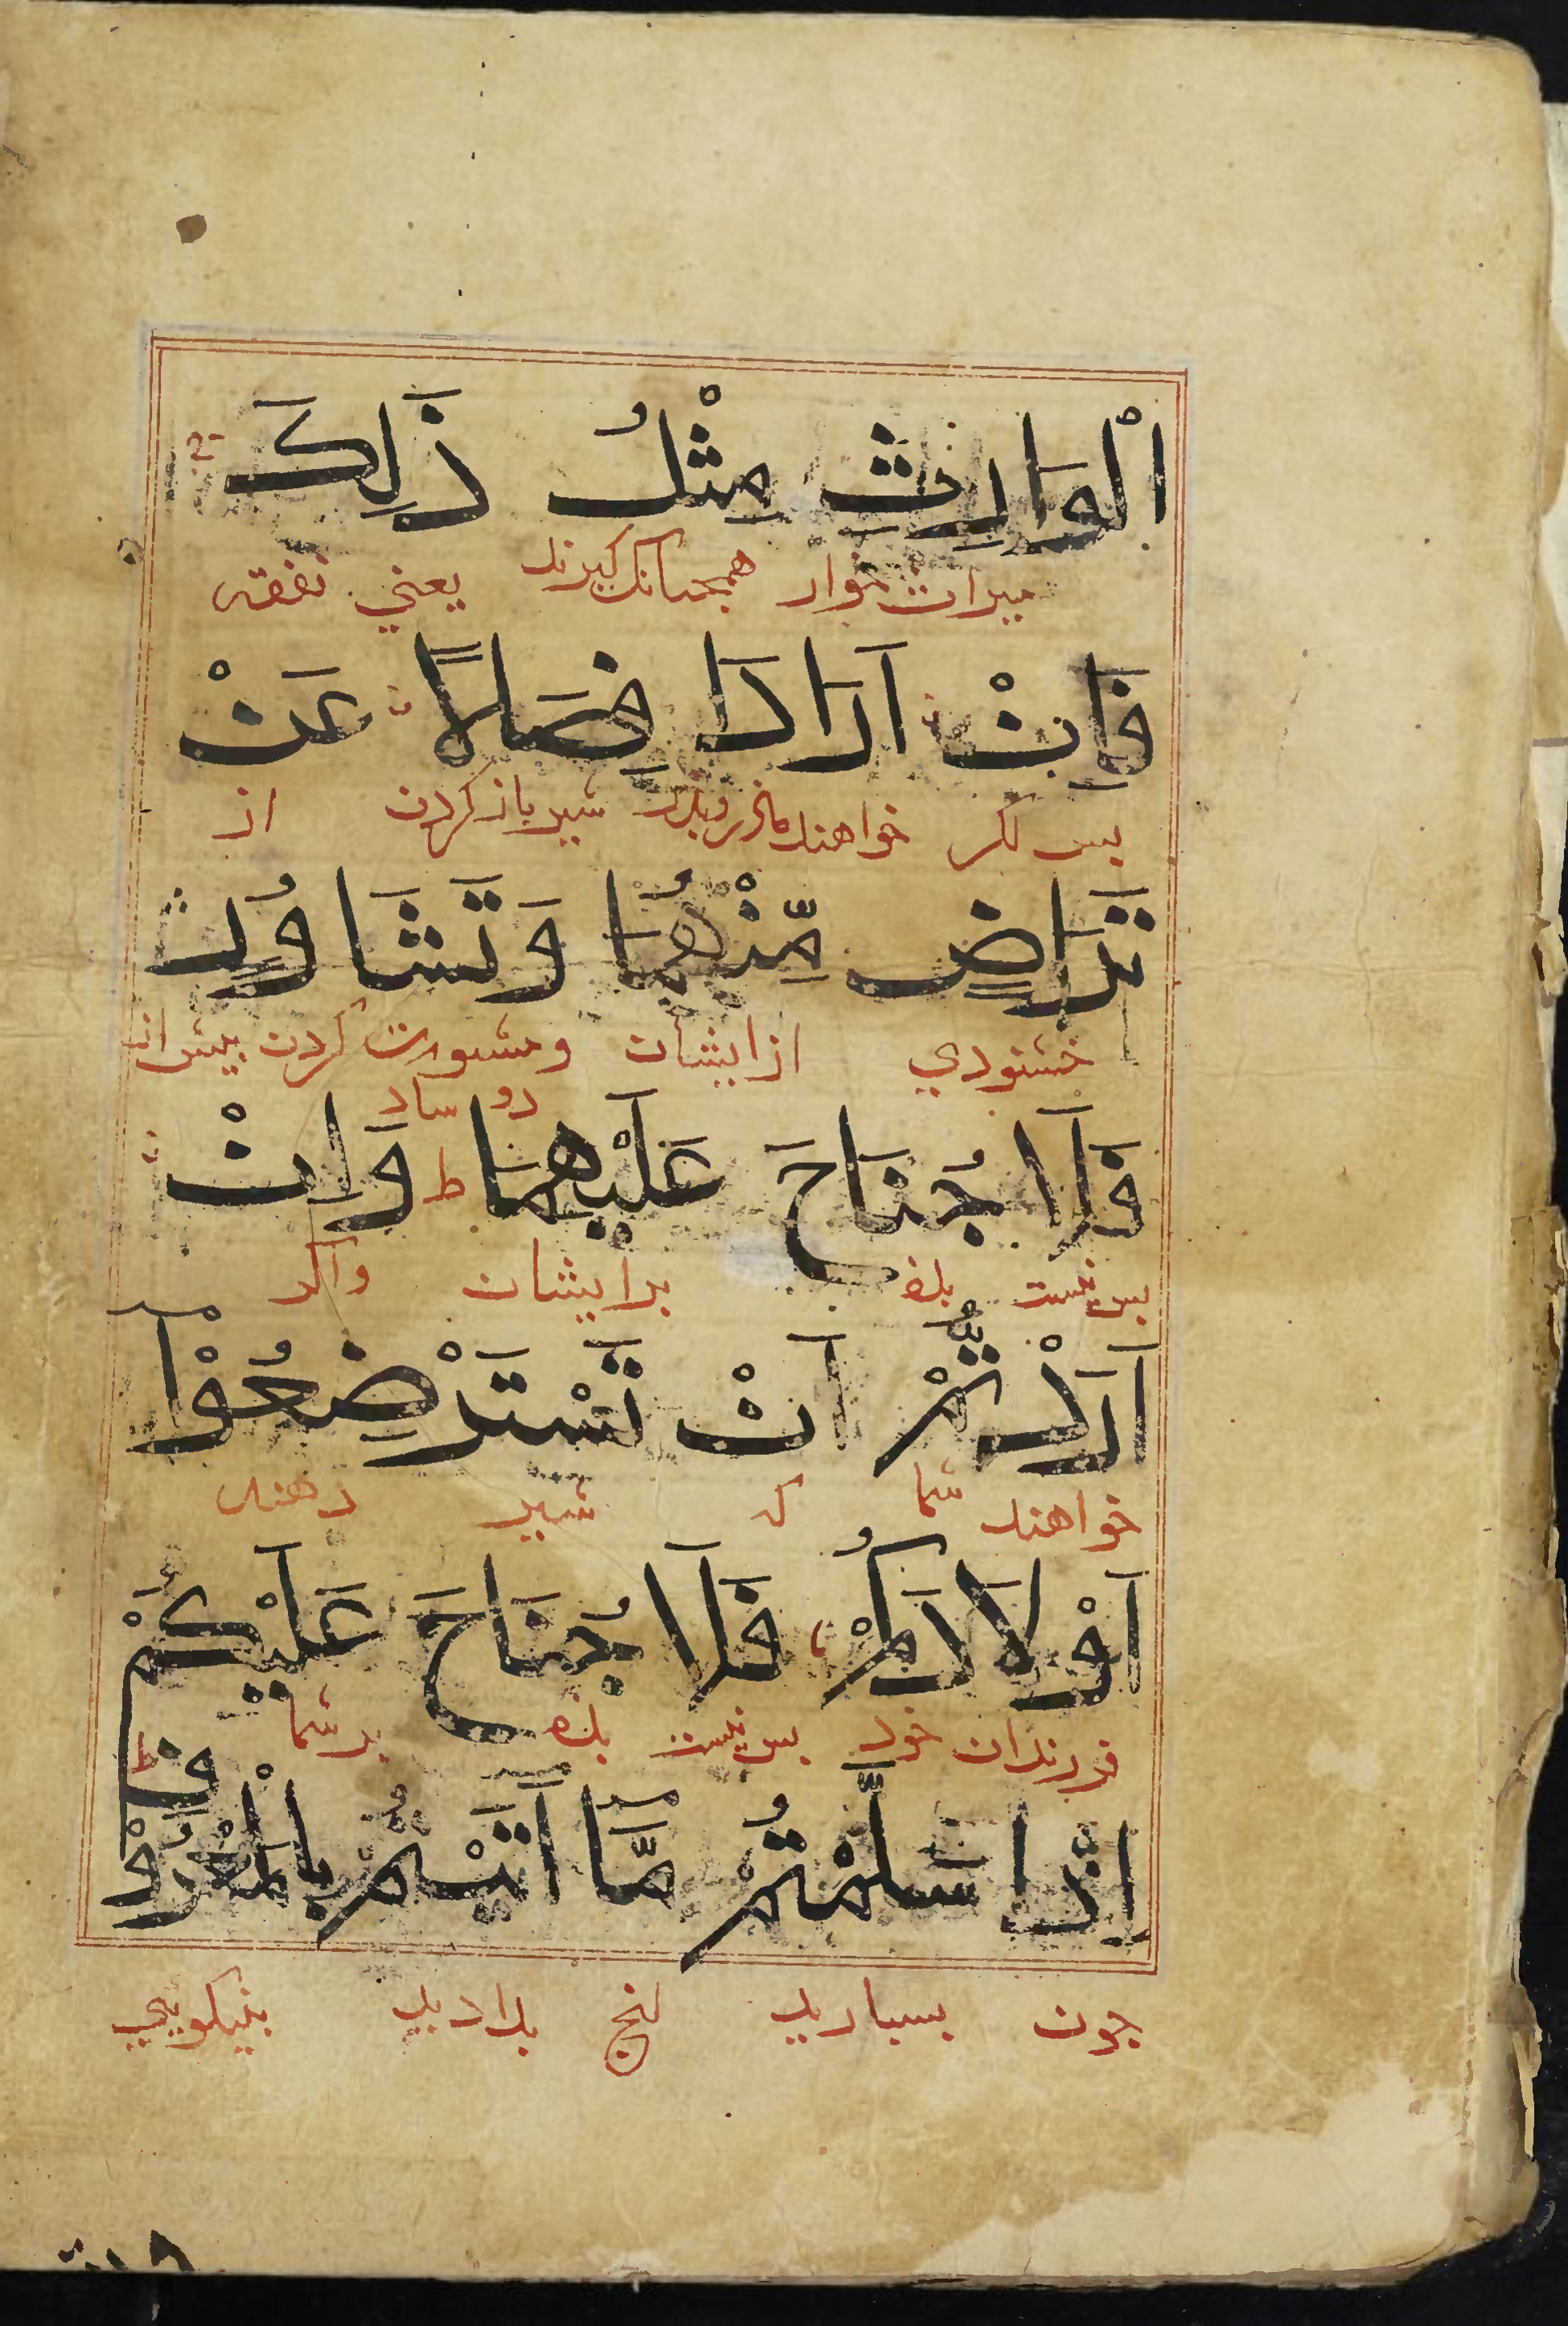 اَلْوَارِثِ مِثْلُ ذَلِكَ
میراث خوار همجنانک کیرند یعنی نفقه
فَاِنْ اَرَادَا فِصَالًا عَنْ
بس اکر خواهند مادر وبدر شیر باز کردن از
تَرَاضٍ مِّنْهُمَا وَتَشَاوُرٍ
خشنودي از ایشان ومشورت کردن بیش از
دو ساد
فَلَا جُنَاحَ عَلَيْهِمَا ط وَاِنْ
بس نیست بزه بر ایشان واکر
اَرَدْتُّمْ اَنْ تَسْتَرْضِعُوْٓا
خواهند شما کـ شیر دهند
اَوْلَادَكُمْ فَلَا جُنَاحَ عَلَيْكُمْ
فرزندان خود بس نیست بزه بر شما
ط
اِذَا سَلَّمْتُمْ مَّٓا اٰتَيْتُمْ بِالْمَعْرُوْفِ
جون بسبارید انج بدادید بنیکویي